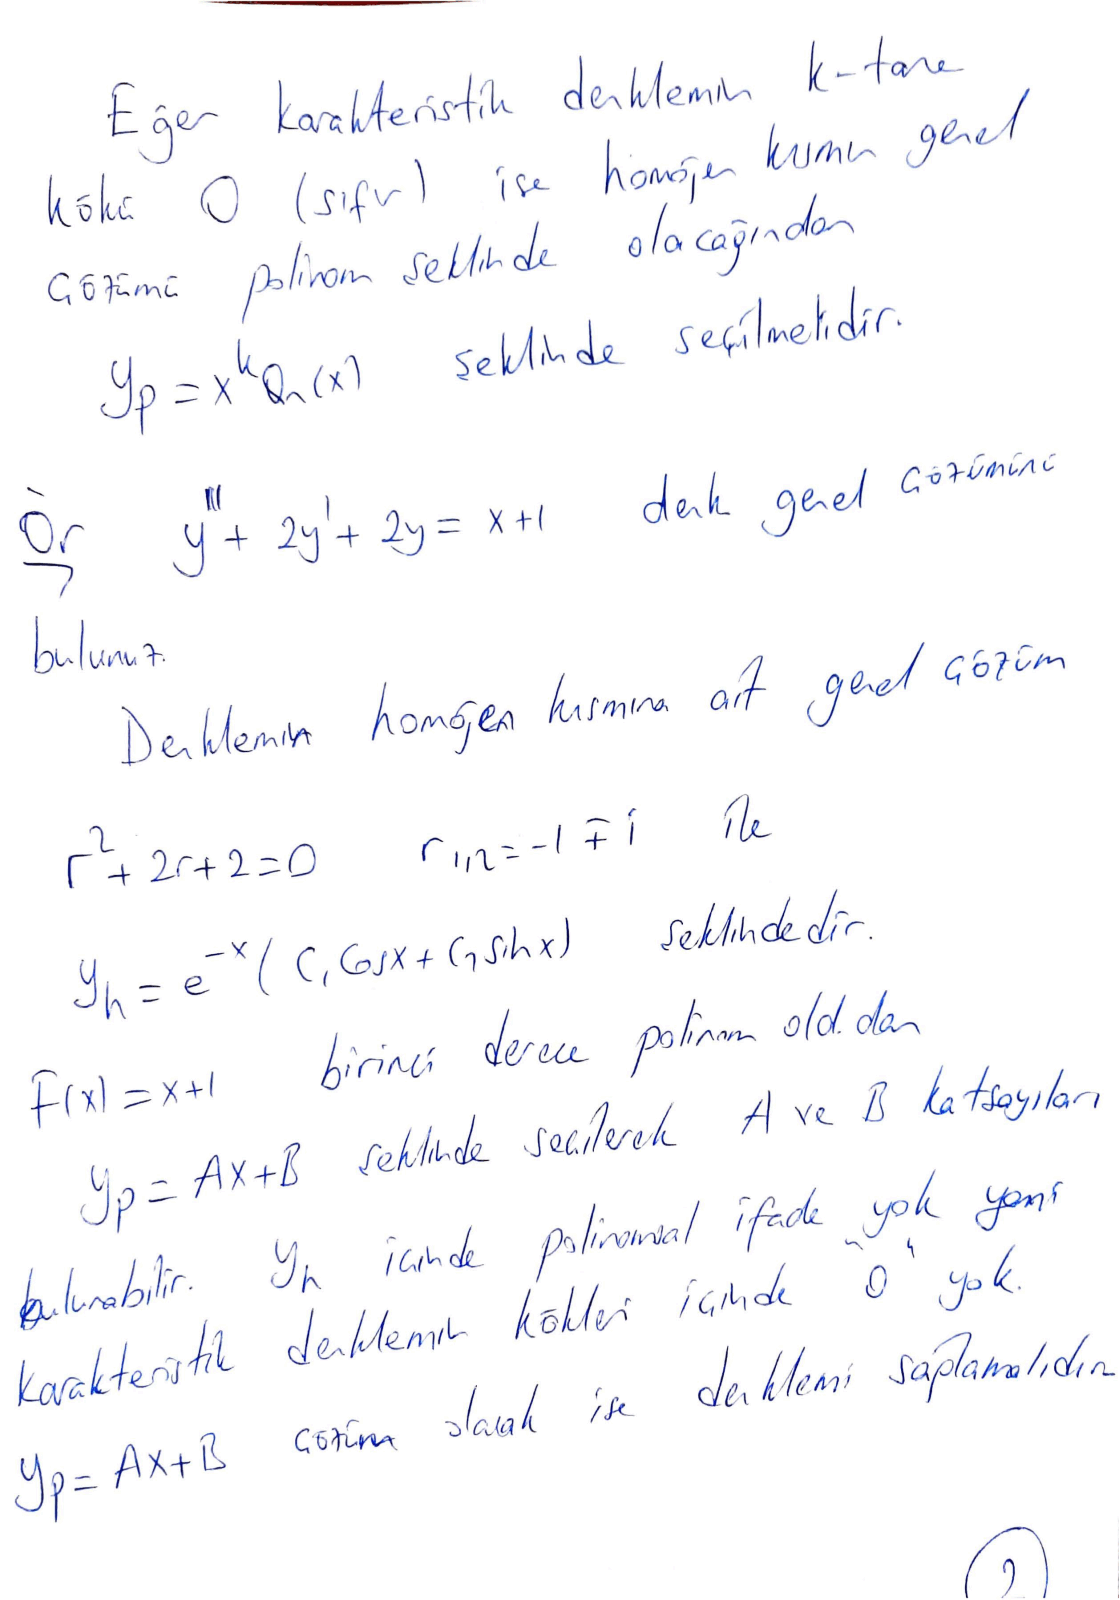 Eğer karakteristik denklemin k-tane
kökü 0 (sıfır) ise homojen kısmın genel
çözümü polinom şeklinde olacağından
yp = x^k Qn(x) şeklinde seçilmelidir.
Ör y''' + 2y' + 2y = x+1 denk genel çözümünü
bulunuz.
Denklemin homojen kısmına ait genel çözüm
r² + 2r + 2 = 0 r1,2 = -1 ∓ i ile
yh = e^-x ( C1 Cosx + C2 sinx) şeklindedir.
F(x) = x+1 birinci derece polinom old. dan
yp = Ax+B şeklinde seçilerek A ve B katsayıları
bulunabilir. yh içinde polinomsal ifade yok yani
karakteristik denklemin kökleri içinde "0" yok.
yp = Ax+B çözüm olacak ise denklemi sağlamalıdır
2